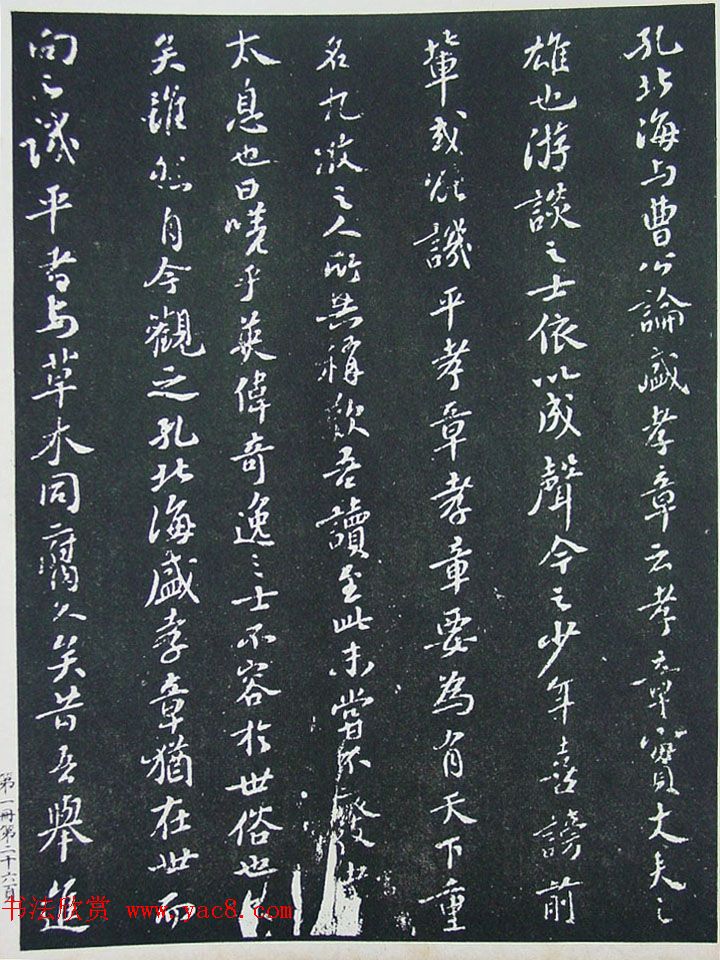 孔北海与曹公論盛孝章云孝章實丈夫之
雄也游談之士依以成聲今之少年喜謗前
輩或能譏平孝章孝章要為有天下重
名九牧之人所共稱歎吾讀至此未嘗不廢書
太息也曰嗟乎英偉奇逸之士不容於世俗也
矣雖然自今觀之孔北海盛孝章猶在世而
向之譏平者与草木同腐久矣昔吾舉進
第一冊第二十六頁
书法欣赏 www.yac8.com